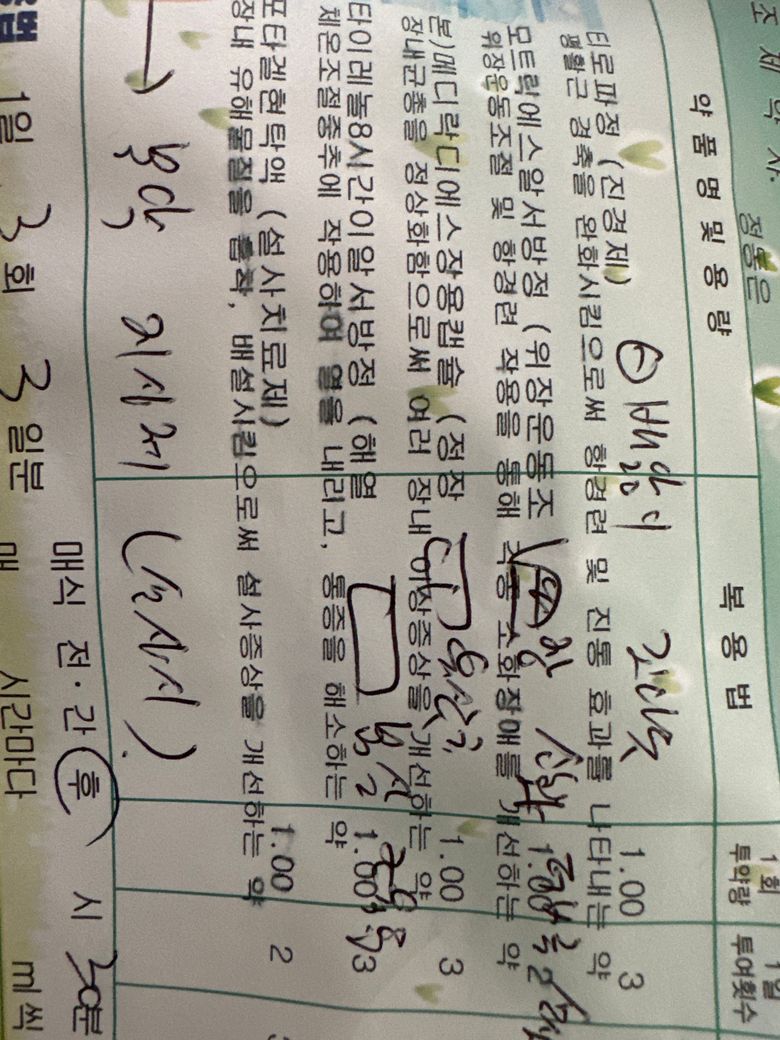 조제약사: 정동은
약품명 및 용량 복용법 1회 투약량 1일 투여횟수
티로파정 (진경제) 1.00 3
평활근 경축을 완화시킴으로써 항경련 및 진통 효과를 나타내는 약
모트락에스알서방정 (위장운동조 1.00
위장운동조절 및 항경련 작용을 통해 각종 소화장애를 개선하는 약
본)메디락디에스장용캡슐 (정장 1.00 3
장내균총을 정상화함으로써 여러 장내 이상증상을 개선하는 약
타이레놀8시간이알서방정 (해열 1.00 3
체온조절중추에 작용하여 열을 내리고, 통증을 해소하는 약
포타겔현탁액 (설사치료제) 1.00 2
장내 유해물질을 흡착, 배설시킴으로써 설사증상을 개선하는 약
물약 지사제 (설사시)
법 1일 3회 3일분 매식 전·간 후 시 30분
매 시간마다 ml씩